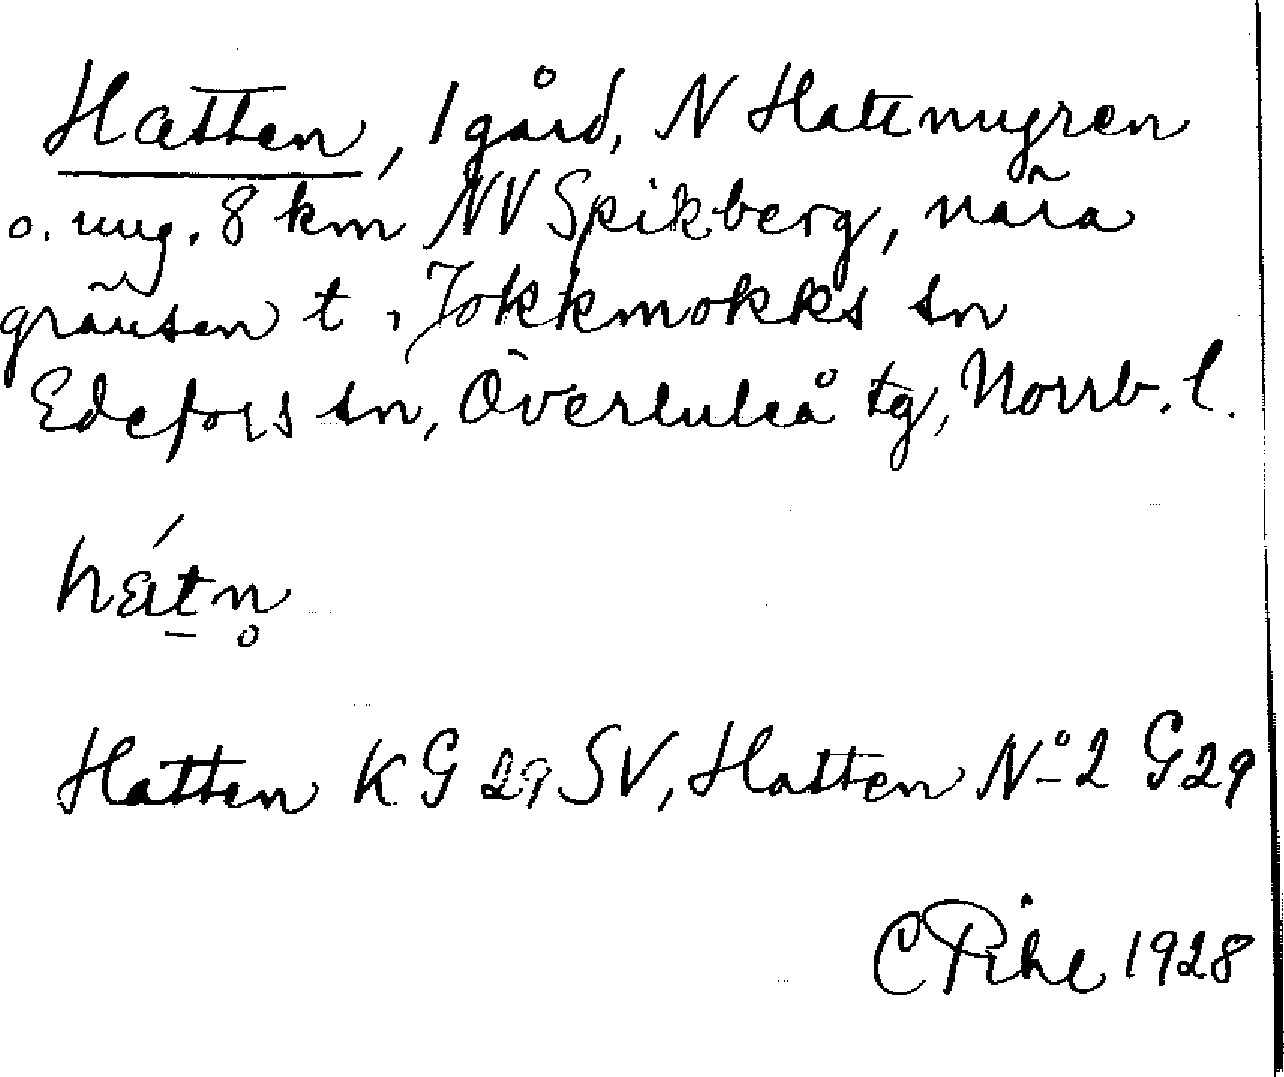 Hatten, 1 gård, N Hattmyren
o. ung. 8 km NV Spikberg, nära
gränsen t. Jokkmokks sn
Edefors sn, Överluleå tg, Norrb. l.
Hatten K G 29 SV, Hatten No 2 G 29
C Pihl 1928